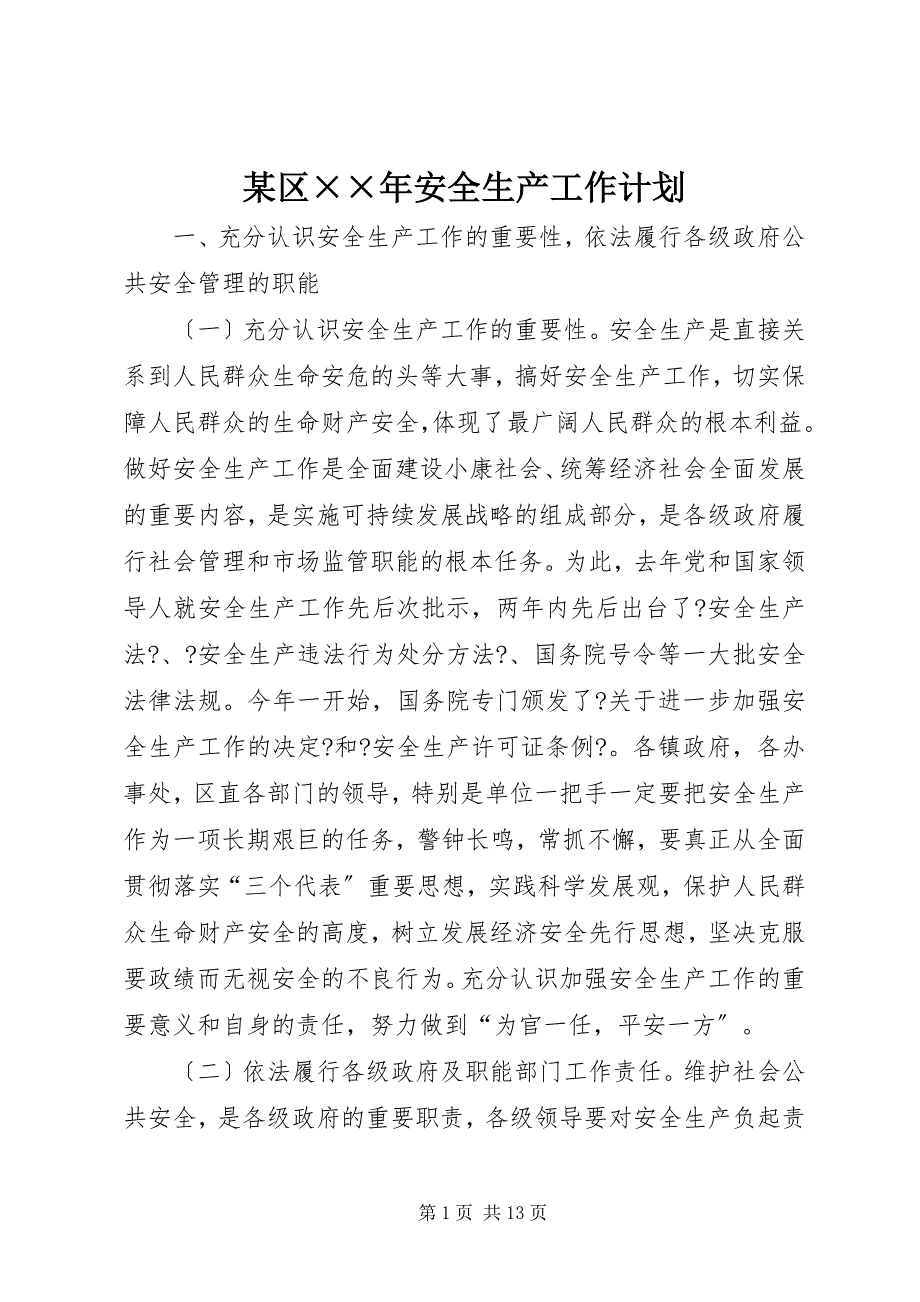 某区××年安全生产工作计划
一、充分认识安全生产工作的重要性，依法履行各级政府公
共安全管理的职能
〔一〕充分认识安全生产工作的重要性。安全生产是直接关
系到人民群众生命安危的头等大事，搞好安全生产工作，切实保
障人民群众的生命财产安全，体现了最广阔人民群众的根本利益。
做好安全生产工作是全面建设小康社会、统筹经济社会全面发展
的重要内容，是实施可持续发展战略的组成部分，是各级政府履
行社会管理和市场监管职能的根本任务。为此，去年党和国家领
导人就安全生产工作先后次批示，两年内先后出台了?安全生产
法?、?安全生产违法行为处分方法?、国务院号令等一大批安全
法律法规。今年一开始，国务院专门颁发了?关于进一步加强安
全生产工作的决定?和?安全生产许可证条例?。各镇政府，各办
事处，区直各部门的领导，特别是单位一把手一定要把安全生产
作为一项长期艰巨的任务，警钟长鸣，常抓不懈，要真正从全面
贯彻落实“三个代表〞重要思想，实践科学发展观，保护人民群
众生命财产安全的高度，树立发展经济安全先行思想，坚决克服
要政绩而无视安全的不良行为。充分认识加强安全生产工作的重
要意义和自身的责任，努力做到“为官一任，平安一方〞。
〔二〕依法履行各级政府及职能部门工作责任。维护社会公
共安全，是各级政府的重要职责，各级领导要对安全生产负起责
第 1 页 共 13 页